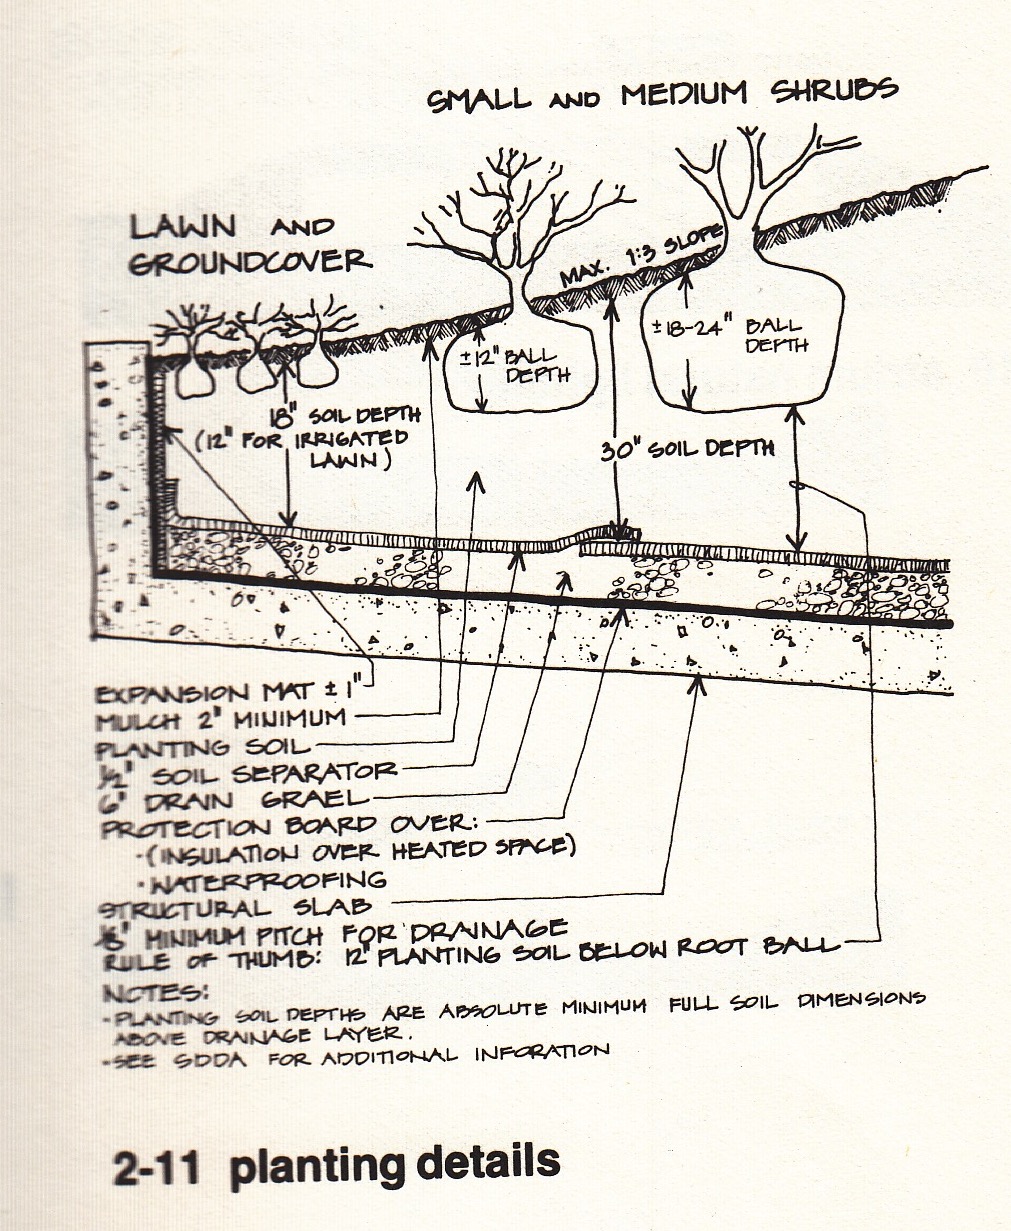 SMALL AND MEDIUM SHRUBS
LAWN AND
GROUNDCOVER
MAX. 1:3 SLOPE
±12" BALL
DEPTH
±18-24" BALL
DEPTH
18" SOIL DEPTH
(12" FOR IRRIGATED
LAWN)
30" SOIL DEPTH
EXPANSION MAT ± 1"
MULCH 2" MINIMUM
PLANTING SOIL
½" SOIL SEPARATOR
6" DRAIN GRAEL
PROTECTION BOARD OVER:
·(INSULATION OVER HEATED SPACE)
·WATERPROOFING
STRUCTURAL SLAB
⅛" MINIMUM PITCH FOR DRAINAGE
RULE OF THUMB: 12" PLANTING SOIL BELOW ROOT BALL
NOTES:
·PLANTING SOIL DEPTHS ARE ABSOLUTE MINIMUM FULL SOIL DIMENSIONS
ABOVE DRAINAGE LAYER.
·SEE SDDA FOR ADDITIONAL INFORATION
2-11 planting details